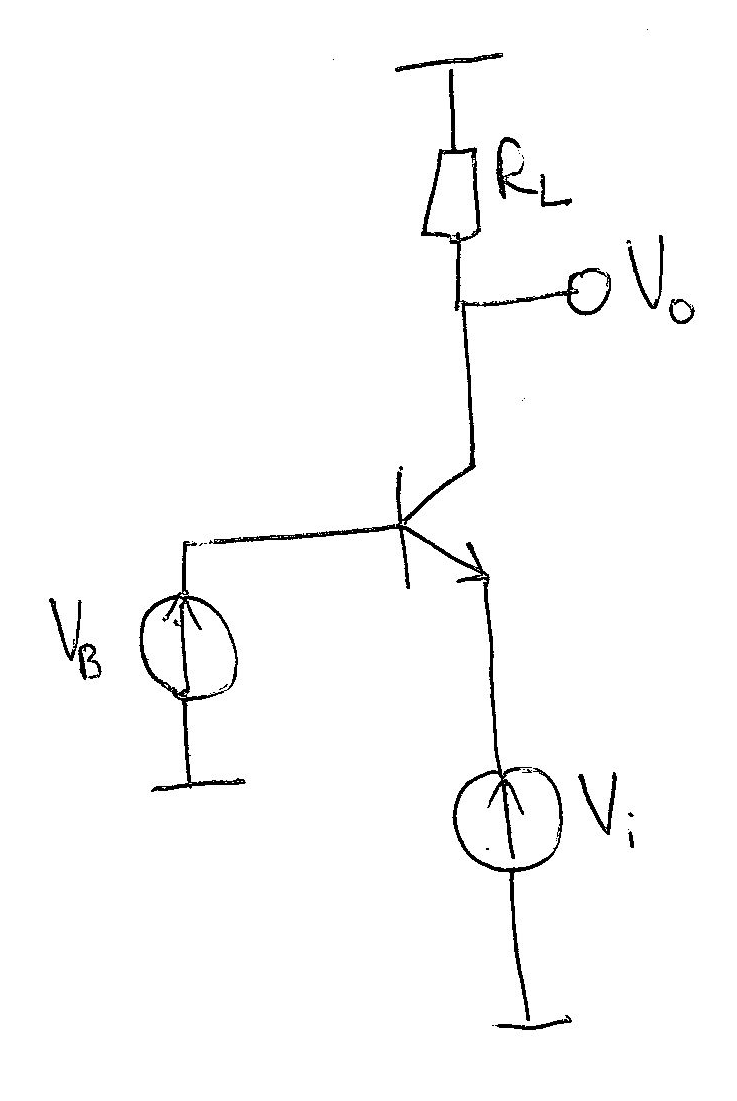 R_L
V_o
V_B
V_i